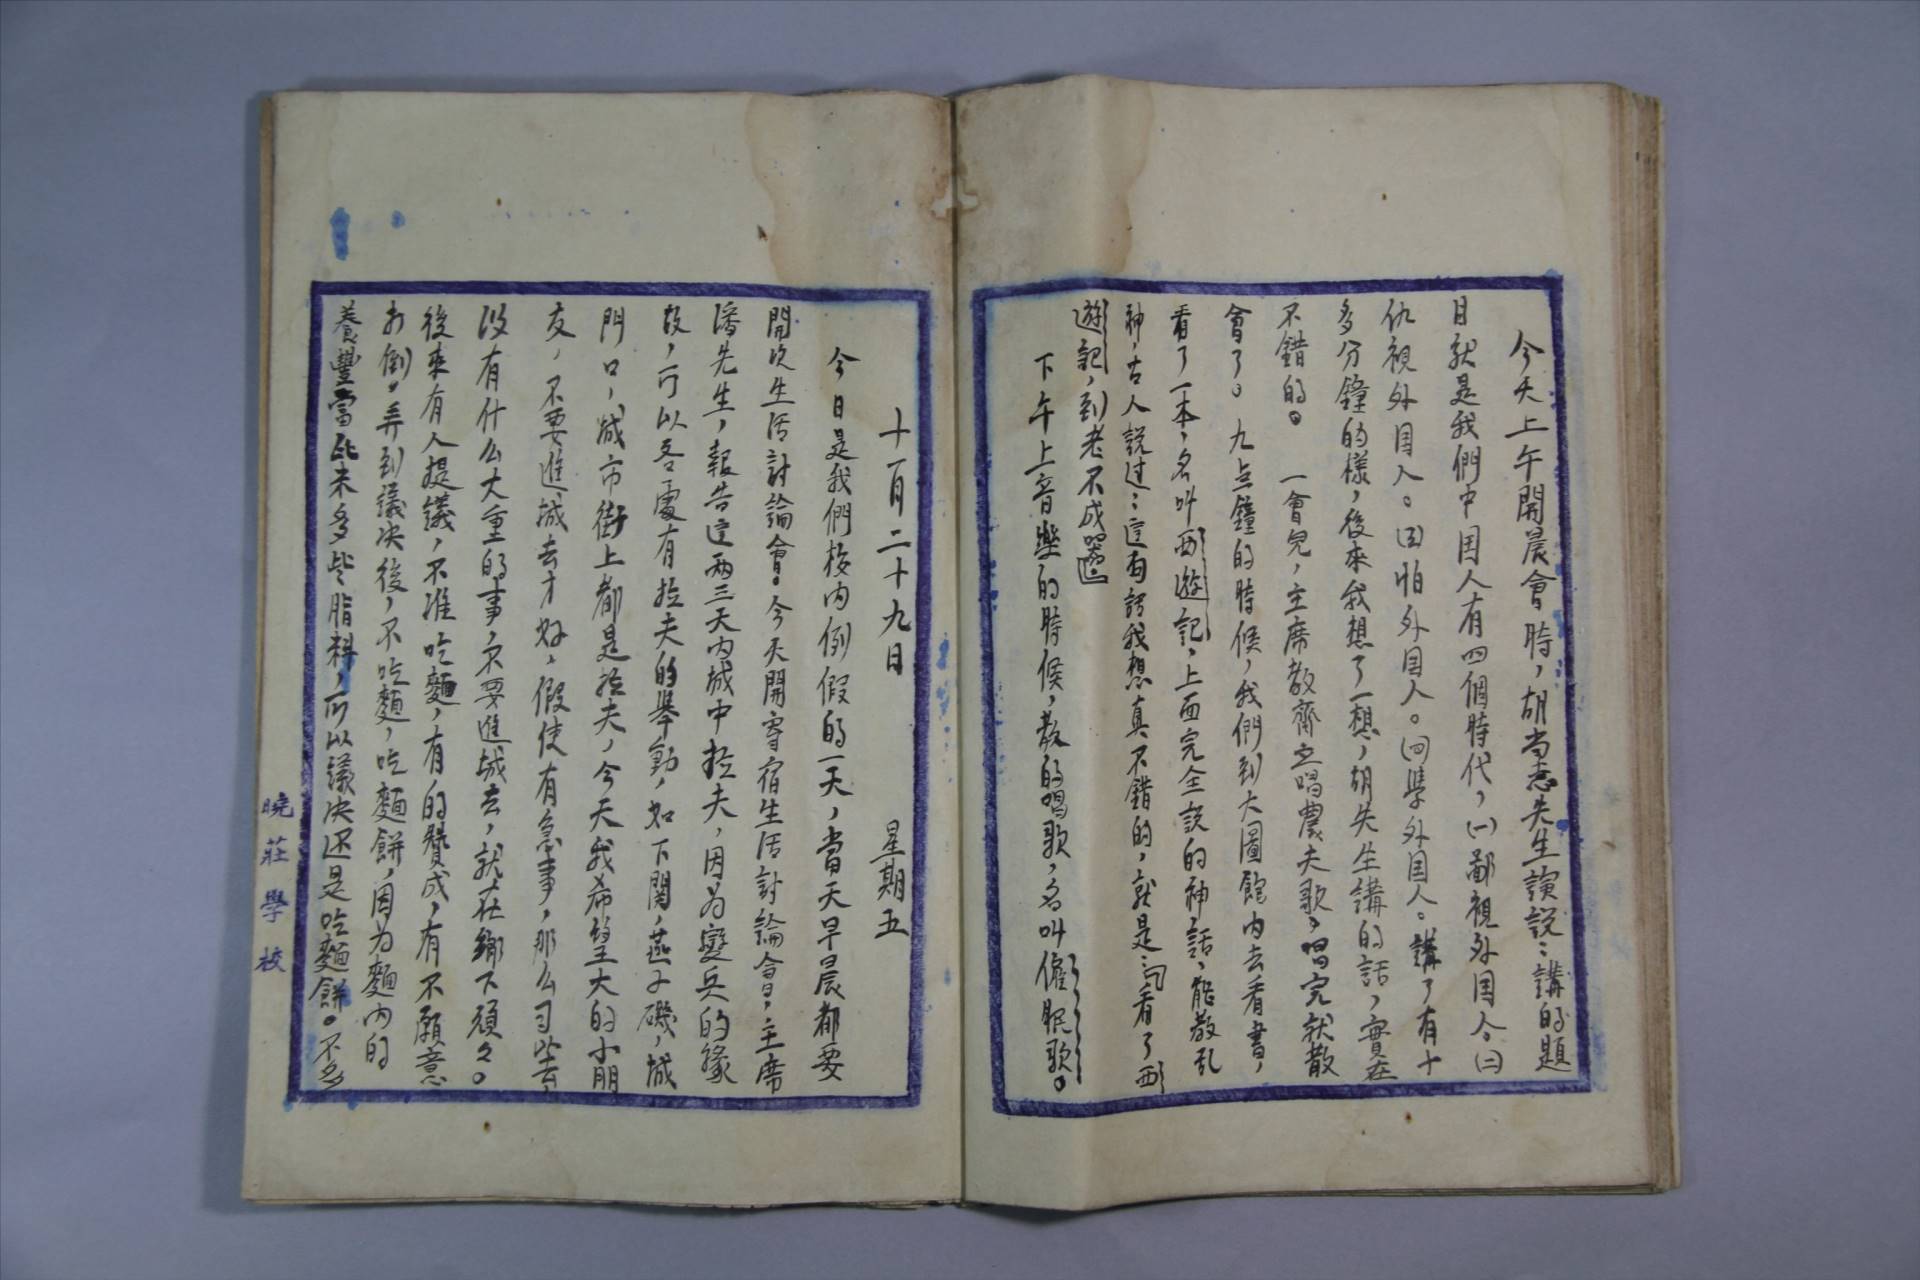 今天上午開晨會時，胡尚志先生演說：講的題
目就是我們中国人有四個時代，㈠鄙視外国人。㈡
仇視外国人。㈢怕外国人。㈣學外国人。講了有十
多分鐘的樣，後來我想了一想，胡先生講的話，實在
不錯的。　一會兒，主席教齋之唱農夫歌，唱完就散
會了。九点鐘的時候，我們到大圖館内去看書，
看了一本，名叫西遊記，上面完全說的神話，能教乱
神，古人說过：這兩句話我想真不錯的，就是：看了西
遊記，到老不成器
下午上音樂的時候，教的唱歌，名叫催眠歌。
十一月二十九日　星期五
今日是我們校内例假的一天，當天早晨都要
開次生活討論會。今天開寄宿生活討論會，主席
潘先生，報告這两三天内城中拉夫，因为變兵的緣
故，可以各處有拉夫的舉動，如下関，燕子磯，城
門口，城市街上都是拉夫，今天我希望大的小朋
友，不要進城去才好，假使有急事，那么可些去，
没有什么大重的事，不要進城去，就在鄉下頑々。
後來有人提議，不准吃麵，有的贊成，有不願意
打倒，弄到議决後，不吃麵，吃麵餅，因为麵内的
養豐富比未多些脂料，所以議决还是吃麵餅。不多
曉莊學校